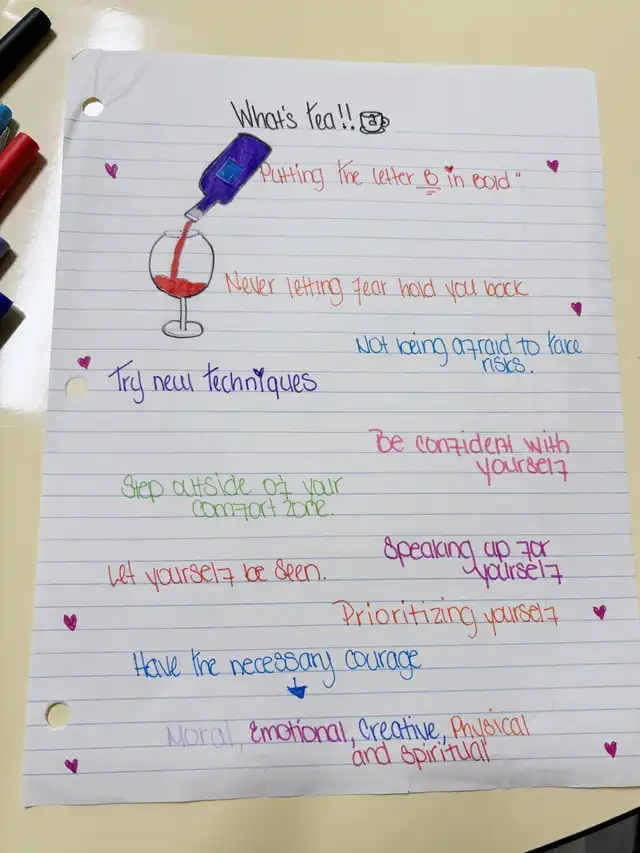 What's tea!!
Putting the letter B in Bold"
Never letting fear hold you back
Not being afraid to take
risks.
Try new techniques
Be confident with
yourself
Step outside of your
comfort zone.
Speaking up for
yourself
Let yourself be seen.
Prioritizing yourself
Have the necessary courage
Moral, Emotional, Creative, Physical
and Spiritual